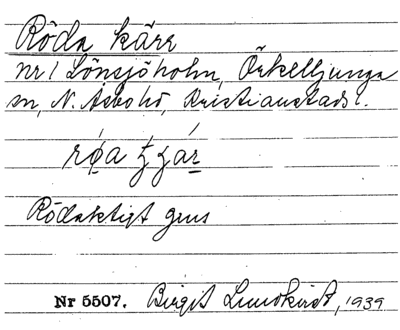 Röda kärr
nr 1 Lönsjöholm, Örkelljunga
sn, N. Åsbo hd, Kristianstads l.
Rödaktigt grus
Nr 5507. Birgit Lundkvist, 1939